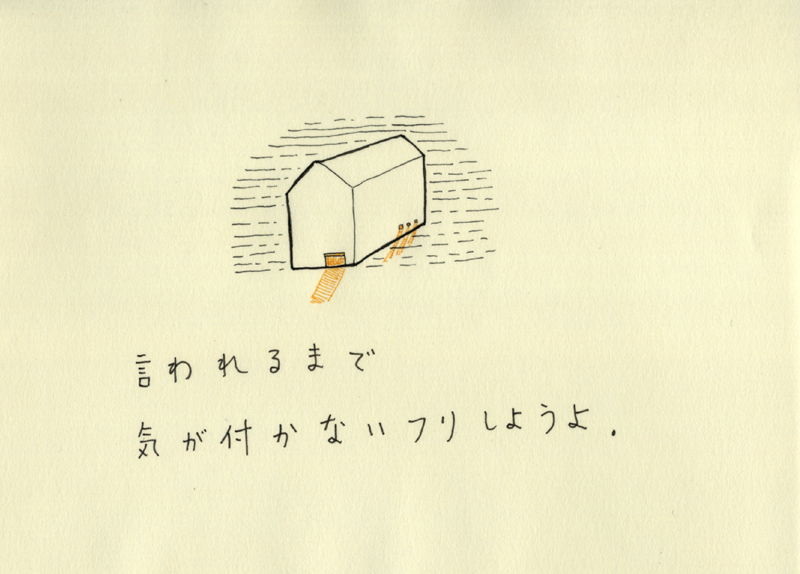 言われるまで
気が付かないフリしようよ.